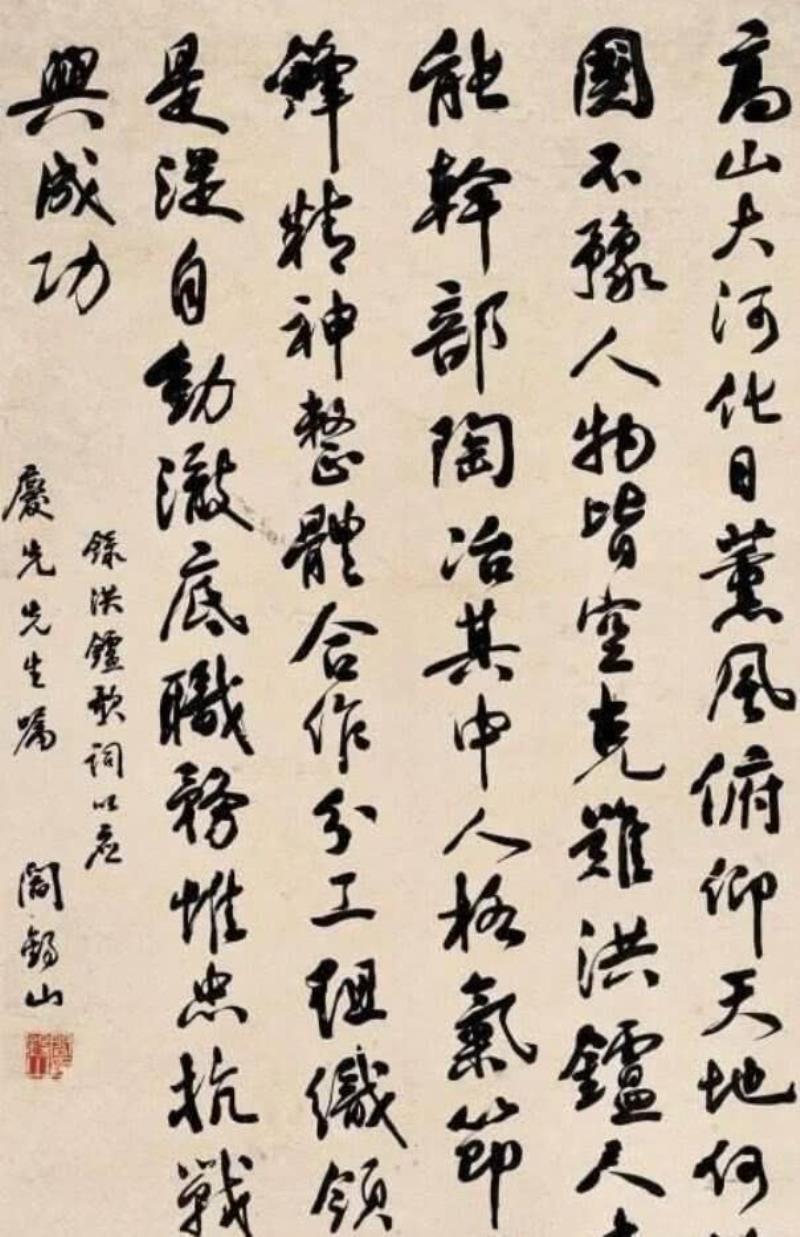 高山大河化日薰風俯仰天地何
國不豫人物皆空克難洪鑪人
能幹部陶冶其中人格氣節
鋒精神整體合作分工組織領
是從自動澈底職務惟忠抗戰
興成功
錄洪鑪歌詞以應
慶先先生囑 閻錫山